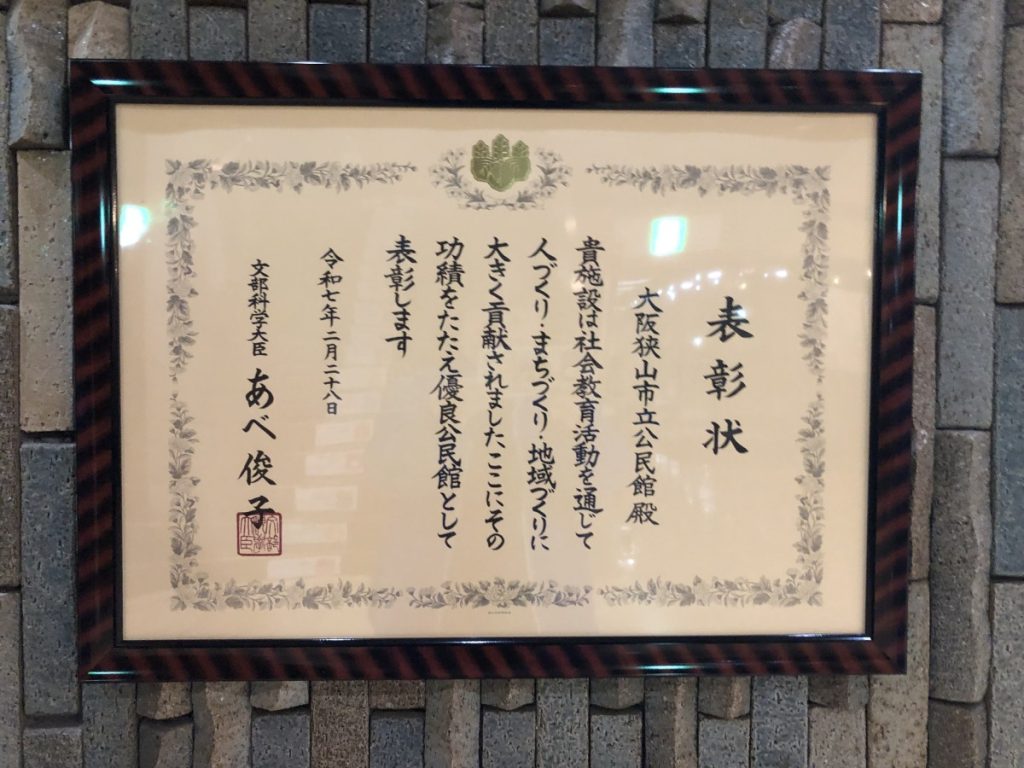 表彰状
大阪狭山市立公民館殿
貴施設は社会教育活動を通じて
人づくり・まちづくり・地域づくりに
大きく貢献されました、ここにその
功績をたたえ優良公民館として
表彰します
令和七年二月二十八日
文部科学大臣 あべ俊子